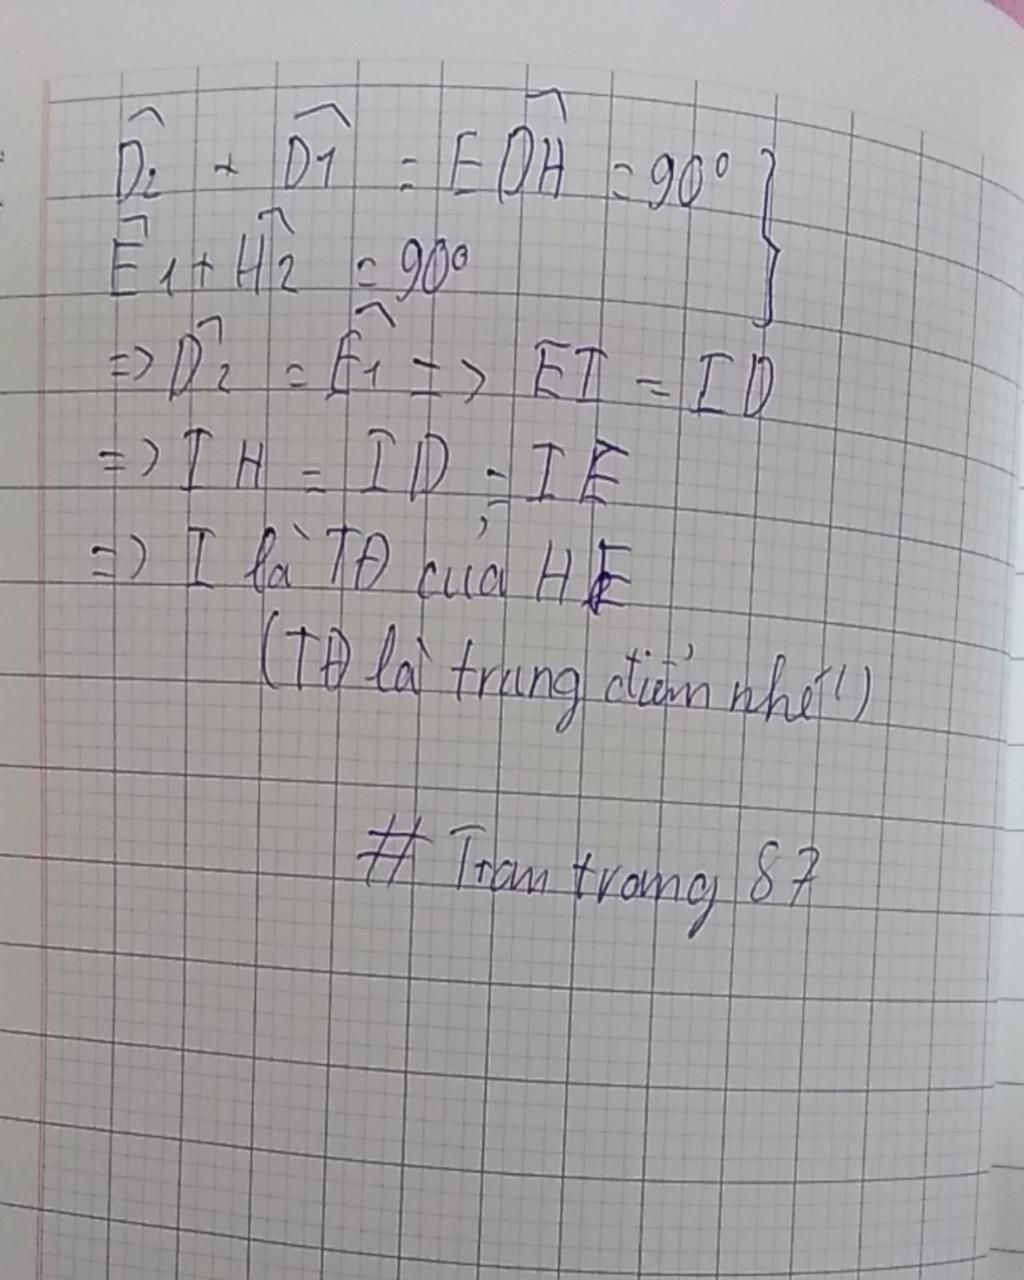 D̂₂ + D̂1 = EDĤ = 90° }
Ê1 + Ĥ2 = 90°
=> D̂2 = Ê1 => EI = ID
=> IH = ID = IE
=> I là TĐ của HE
(TĐ là trung điểm nhé!)
# Tram trang 87